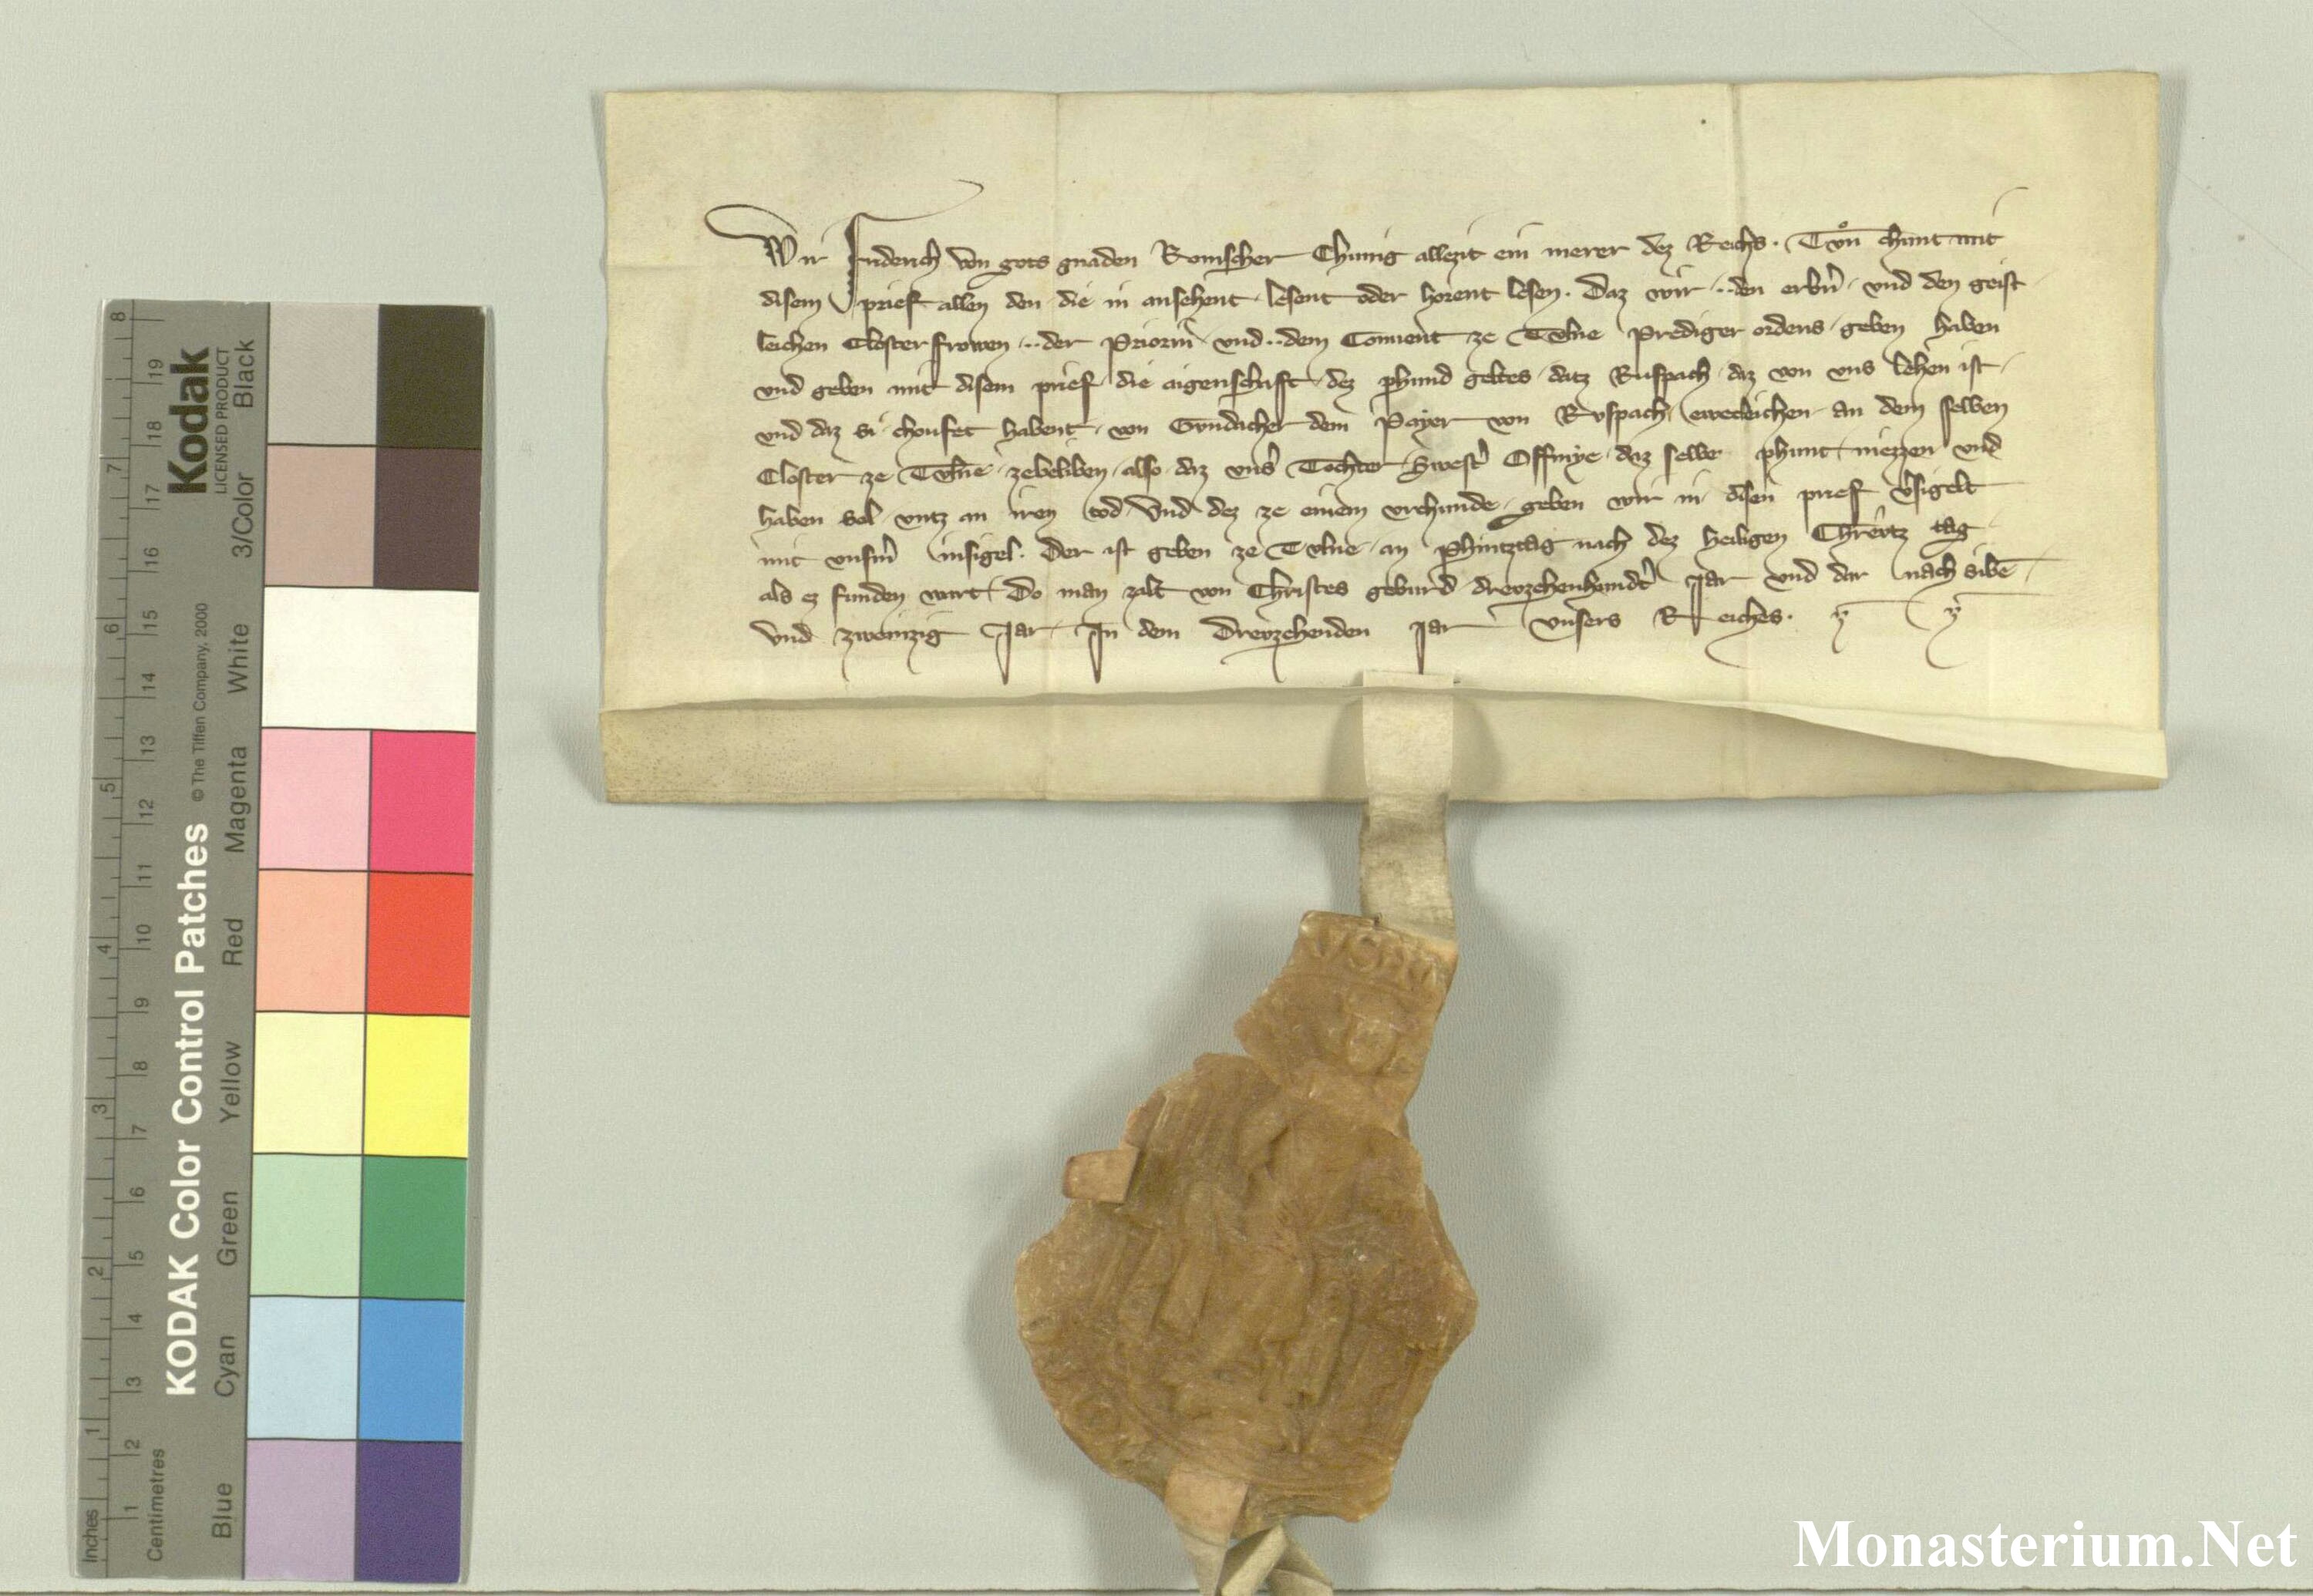 Wir Friderich von gots gnaden Romischer Chunig allezit ein merer dez Reichs. Tuͦn chunt mit
disem prief allen den die in ansehent lesent oder horent lesen. Daz wir ·· den erbn̄ und den geist
leichen Closterfrowen ·· der Priorin und ·· dem Conuent ze Tvlne Prediger ordens geben haben
und geben mit disem prief die aigenschafft dez phund geltes datz Ruspach daz von uns lehen ist
und daz si choufet habent von Gundacher dem Payer von Rvspach ewecleichen an dem selben
Closter ze Tvlne zebeliben also daz uns̄ Tochter Swest̄ Offmye daz selbe phunt niezzen und
haben sol vntz an iren tod Und dez ze einem vrchunde geben wir in disen prief v̄sigelt
mit unsm̄ insigel. Der ist geben ze Tvlne an Phintztag nach dez heiligen Chrevtz tag
als ez funden wart Do man zalt von Christes geburd drevzehenhundt̄ Jar und dar nach sibē
und zweinzig Jar In dem Drevzehenden Jar Unsers Reiches.
KODAK Color Control Patches
Kodak
LICENSED PRODUCT
© The Tiffen Company, 2000
Inches 1 2 3 4 5 6 7 8
Centimetres 1 2 3 4 5 6 7 8 9 10 11 12 13 14 15 16 17 18 19
Blue Cyan Green Yellow Red Magenta White 3/Color Black
Monasterium.Net